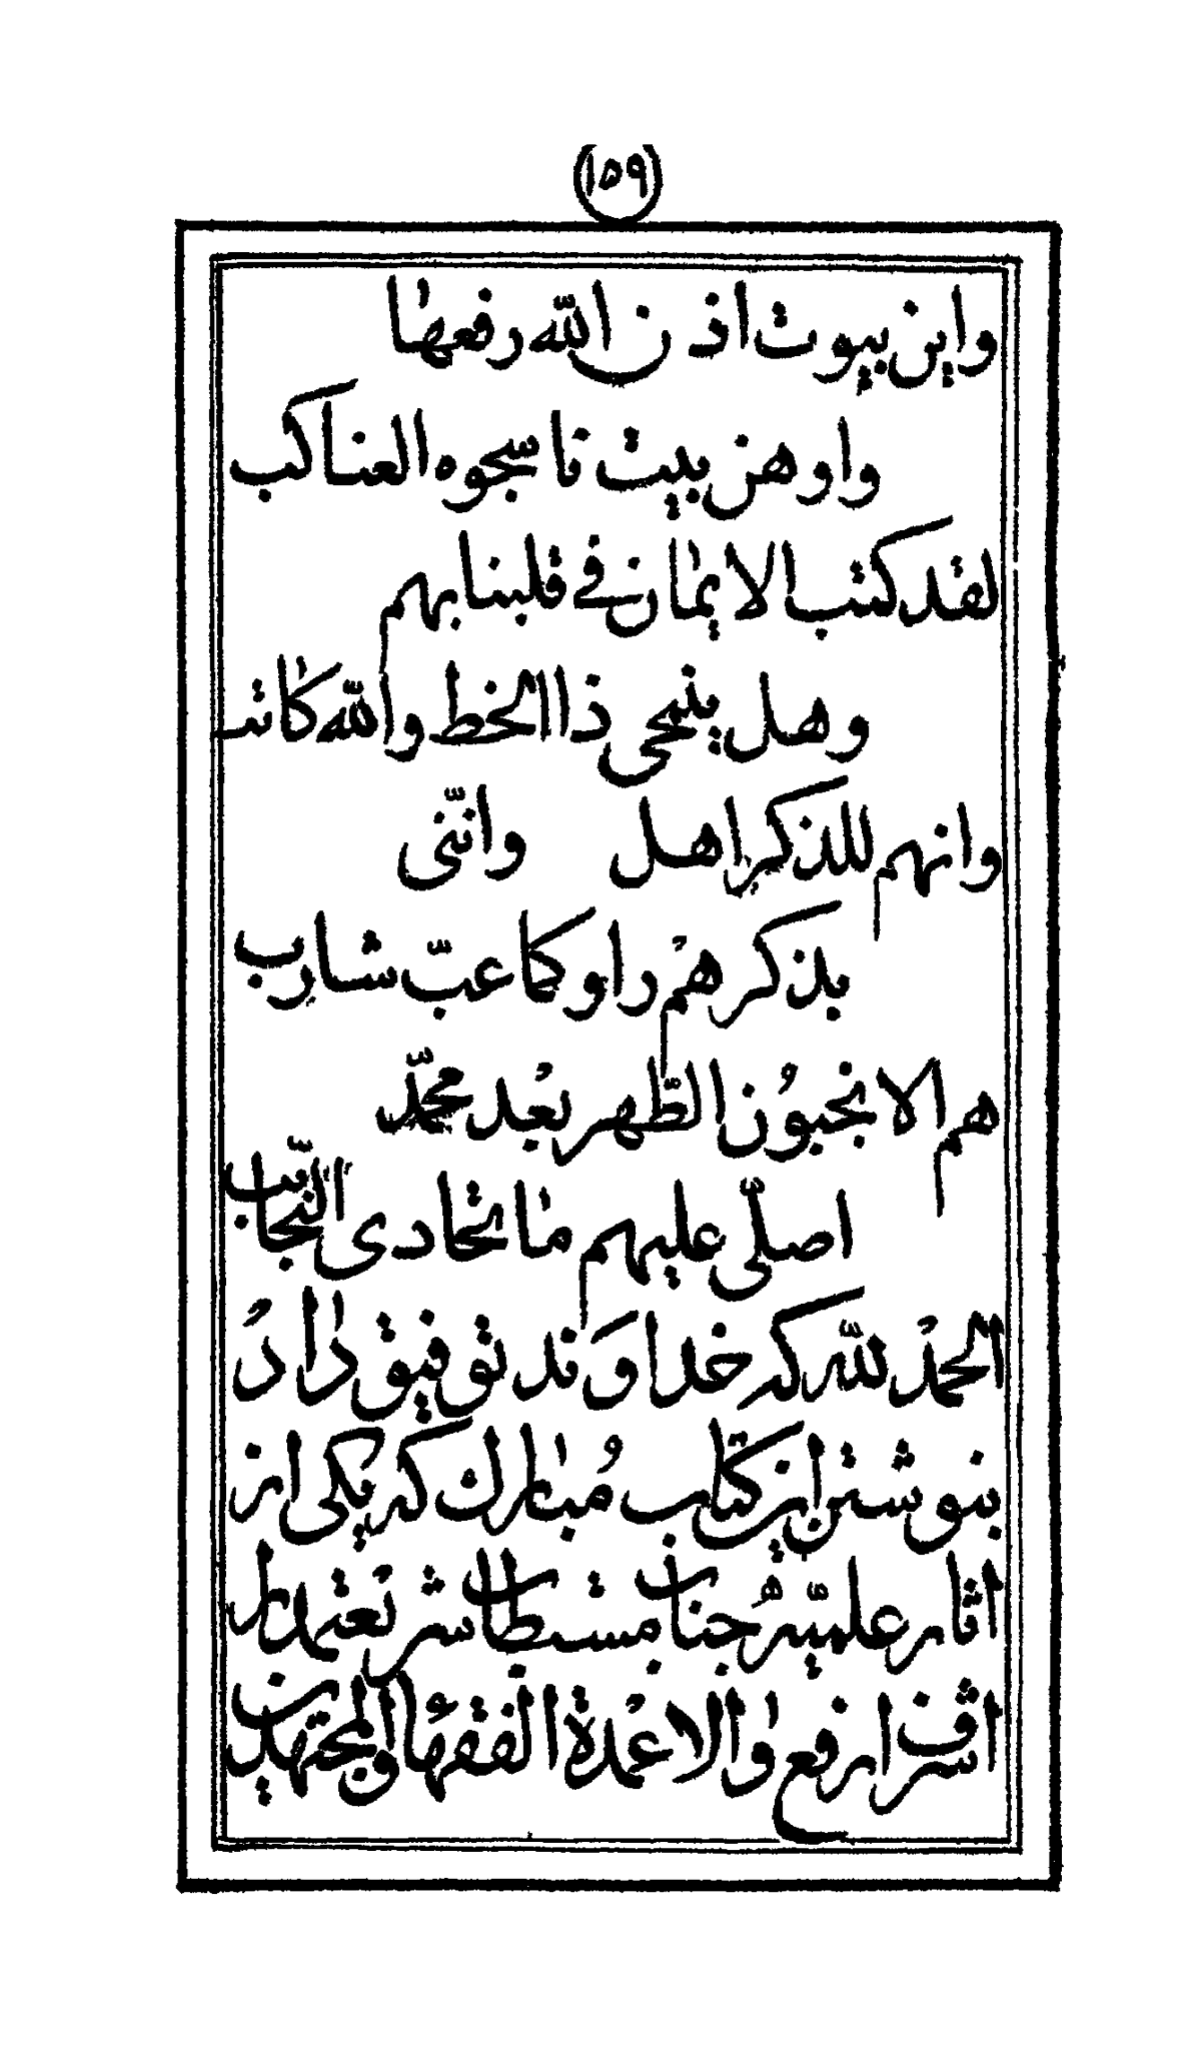 (١٥٩)
واين بيوت اذن الله رفعها
واوهن بيت ناسجوه العناكب
لقد كتب الايمان في قلبنا بهم
وهل ينمحى ذا الخط والله كاتب
وانهم للذكر اهل وانّنى
بذكرهم راو كما عبّ شارب
هم الانجبون الطّهر بعد محمّد
اصلّى عليهم ما تحادى النجائب
الحمد لله كه خداوند توفيق داد
بنوشتن اين كتاب مبارك كه يكى از
اثار علميّه جناب مستطاب شريعتمدار
اشرف ارفع والا عمدة الفقها والمجتهدين